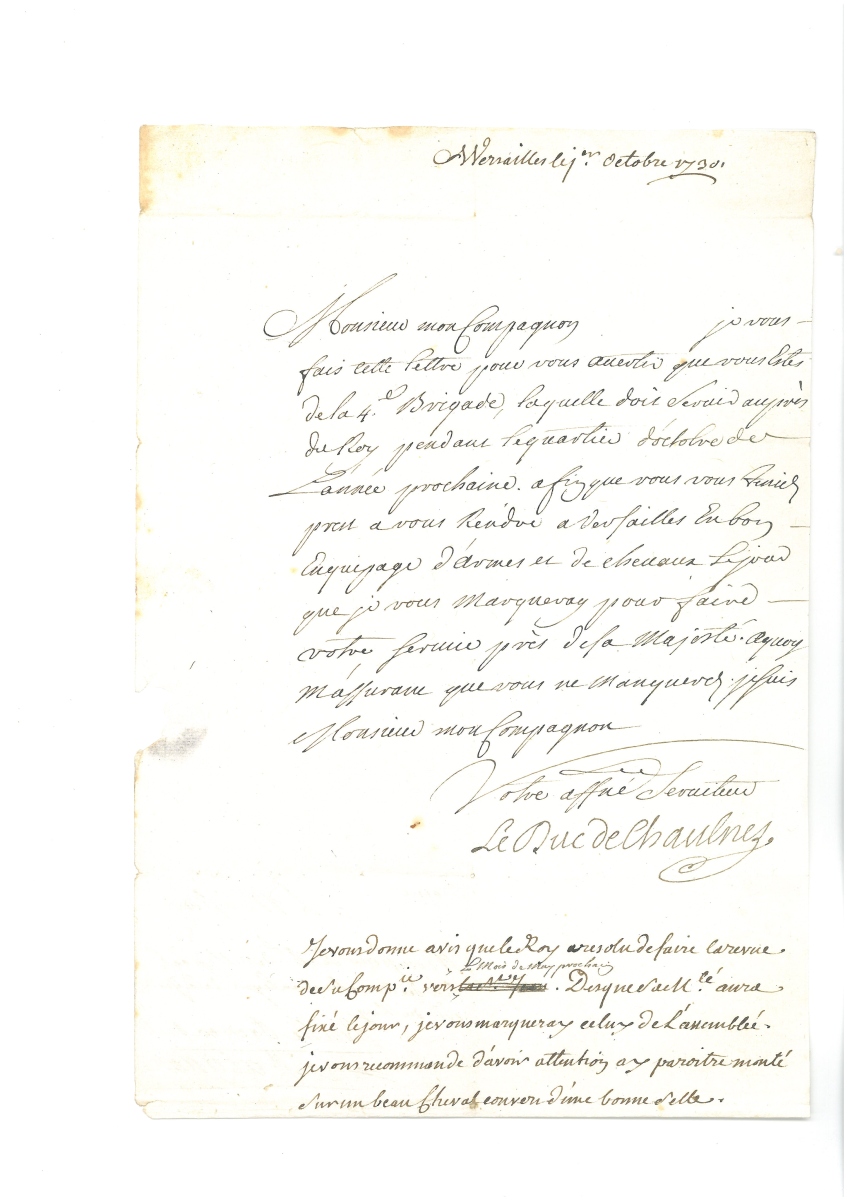 A Versailles le j.er Octobre 1730.
Monsieur mon Compagnon je vous
fais cette lettre pour vous auertir que vous Estes
de la 4.e Brigade, laquelle doit Seruir auprès
du Roy pendant le quartier d'octobre de
L'année prochaine. afin que vous vous teniez
prest a vous Rendre a Versailles En bon
Enquipage d'Armes et de cheuaux Le jour
que je vous Marqueray pour faire
votre seruice près de sa Majesté. aquoy
M'assurant que vous ne Manquerez. je suis
Monsieur mon Compagnon
Votre affné Seruiteur
Le Duc de Chaulnes
Je vous donne avis que le Roy a resolu de faire la revue
Le Mois de May prochain
de sa Comp.ie vers. Des que Sa M.té aura
fixé le jour, je vous marqueray celuy de L'assemblée.
je vous recommande d'avoir attention a y paroitre monté
sur un beau Cheval couvert d'une bonne selle.